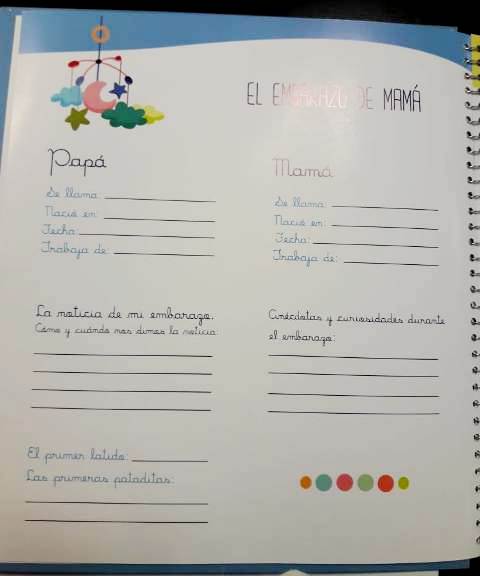 EL EMBARAZO DE MAMÁ
Papá
Se llama:
Nació en:
Fecha:
Trabaja de:
Mamá
Se llama:
Nació en:
Fecha:
Trabaja de:
La noticia de mi embarazo.
Cómo y cuándo nos dimos la noticia:
Anécdotas y curiosidades durante
el embarazo:
El primer latido:
Las primeras pataditas: